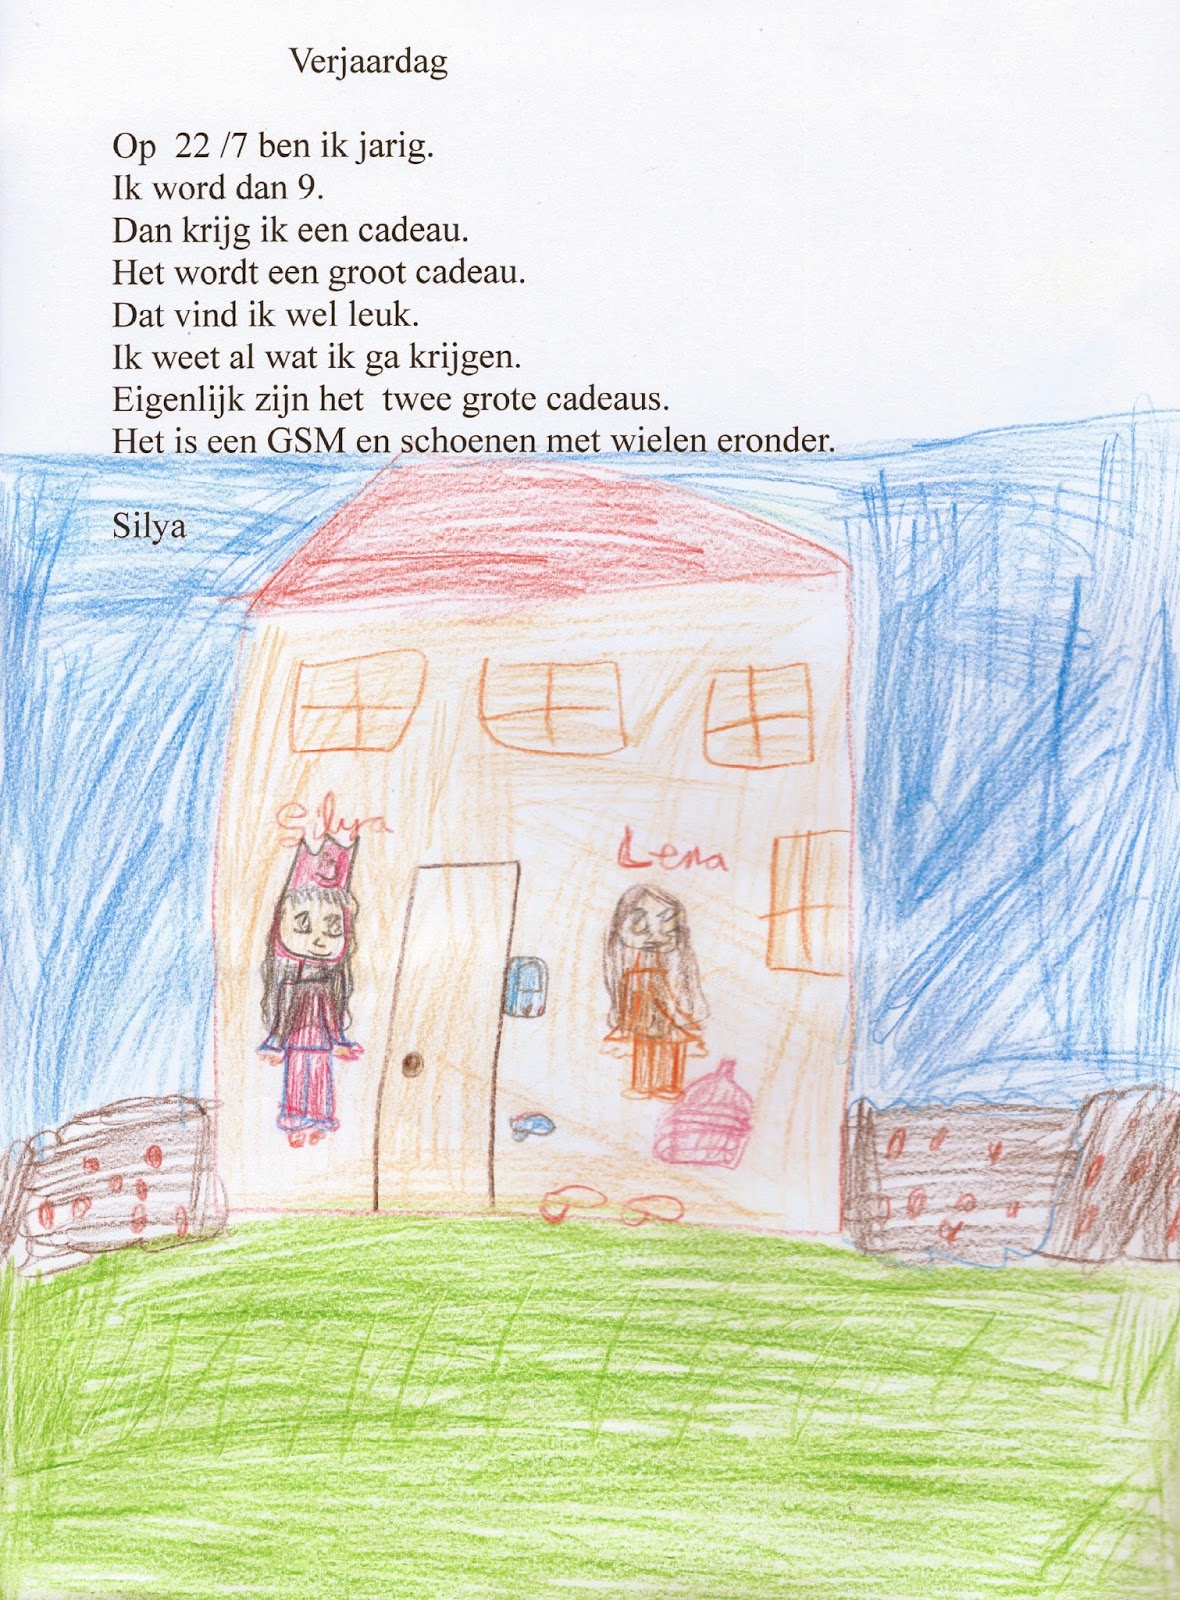 Verjaardag
Op 22 /7 ben ik jarig.
Ik word dan 9.
Dan krijg ik een cadeau.
Het wordt een groot cadeau.
Dat vind ik wel leuk.
Ik weet al wat ik ga krijgen.
Eigenlijk zijn het twee grote cadeaus.
Het is een GSM en schoenen met wielen eronder.
Silya
Silya
Lena